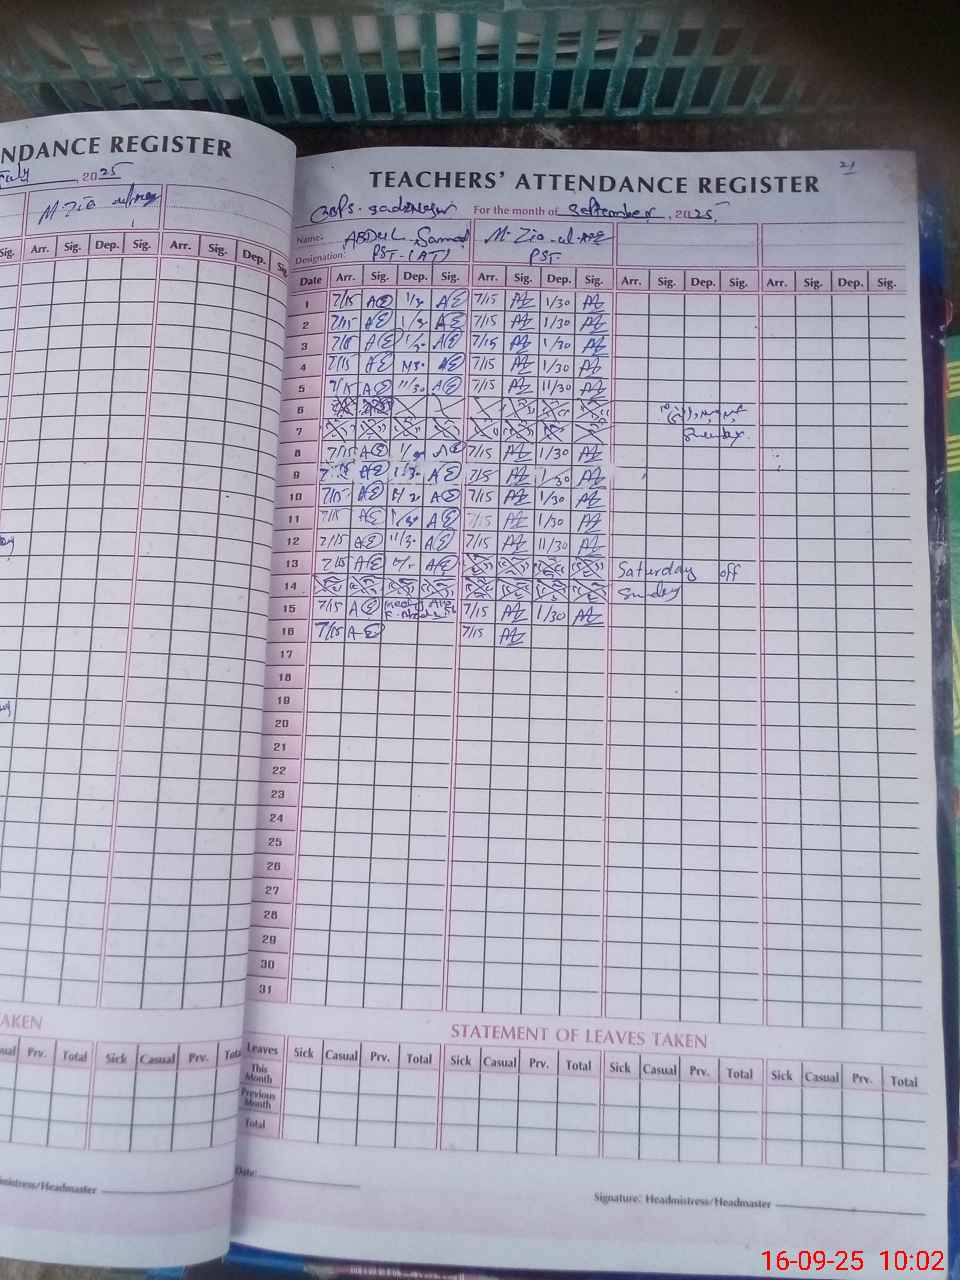 NDANCE REGISTER
July, 2025
M. Zia
Sig. Arr. Sig. Dep. Sig. Arr. Sig. Dep. Sig.
AKEN
Casual Prv. Total Sick Casual Prv. Total
mistress/Headmaster
21
TEACHERS' ATTENDANCE REGISTER
For the month of September, 2025
Name: ABDUL Samad M. Zia-ul
Designation: PST-(AT) PST
Date Arr. Sig. Dep. Sig. Arr. Sig. Dep. Sig. Arr. Sig. Dep. Sig. Arr. Sig. Dep. Sig.
1 7/15 AE 1/30 AE 7/15 AZ 1/30 AZ
2 7/15 AE 1/30 AE 7/15 AZ 1/30 AZ
3 7/15 AE 1/30 AE 7/15 AZ 1/30 AZ
4 7/15 AE 1/30 AE 7/15 AZ 1/30 AZ
5 7/15 AE 11/30 AE 7/15 AZ 11/30 AZ
6
7 Sunday.
8 7/15 AE 1/30 AE 7/15 AZ 1/30 AZ
9 7/15 AE 1/30 AE 7/15 AZ 1/30 AZ
10 7/15 AE AE 7/15 AZ 1/30 AZ
11 7/15 AE 1/30 AE 7/15 AZ 1/30 AZ
12 7/15 AE 11/30 AE 7/15 AZ 11/30 AZ
13 7/15 AE AE Saturday off
14 Sunday
15 7/15 AE 7/15 AZ 1/30 AZ
16 7/15 AE 7/15 AZ
17
18
19
20
21
22
23
24
25
26
27
28
29
30
31
STATEMENT OF LEAVES TAKEN
Leaves Sick Casual Prv. Total Sick Casual Prv. Total Sick Casual Prv. Total Sick Casual Prv. Total
This Month
Previous Month
Total
Date:
Signature: Headmistress/Headmaster
16-09-25 10:02